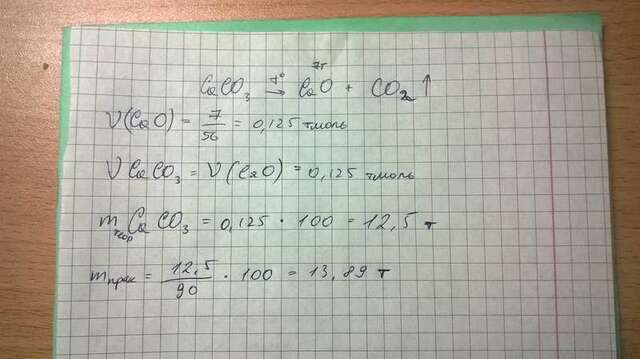 7т
CaCO₃ →t° CaO + CO₂↑
ν(CaO) = 7/56 = 0,125 тмоль
ν CaCO₃ = ν(CaO) = 0,125 тмоль
m теор CaCO₃ = 0,125 · 100 = 12,5 т
m прак = 12,5/90 · 100 = 13,89 т